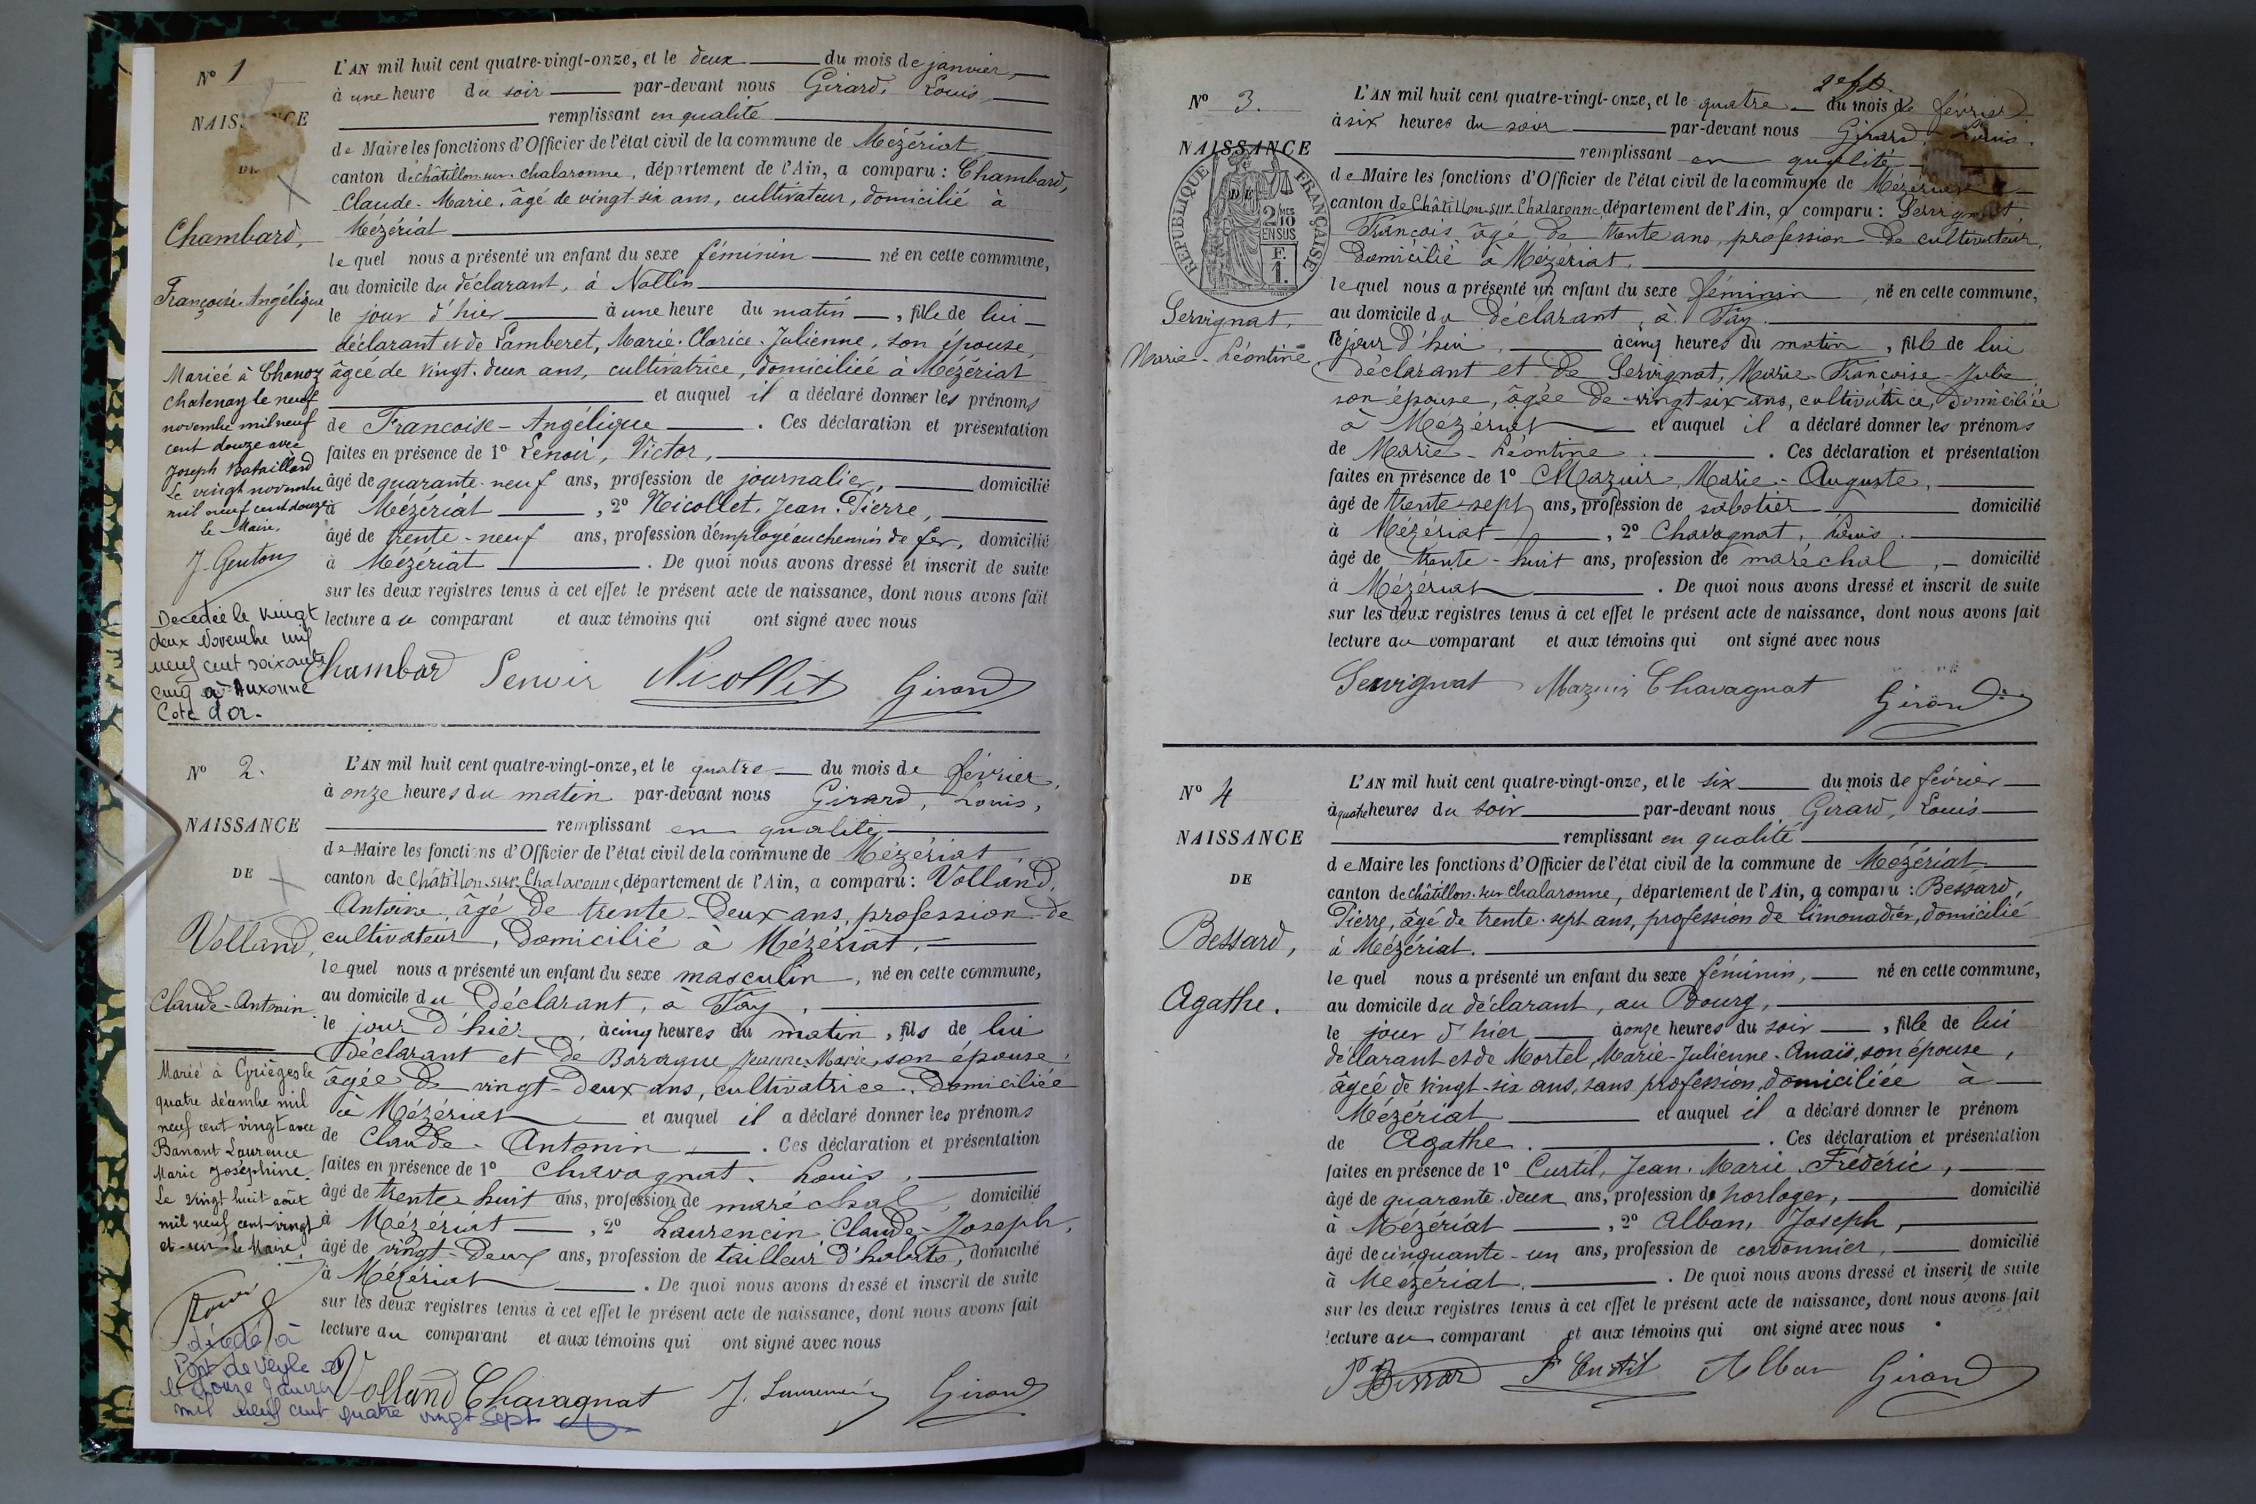 N° 1
NAISSANCE
DE
Chambard,
Françoise-Angélique
Mariée à Chanoz
Chatenay le neuf
novembre mil neuf
cent douze avec
Joseph Bataillard
Le vingt novembre
mil neuf cent douze
le Maire,
J. Genton
Decedée le vingt
deux Novembre mil
neuf cent soixante
cinq à Auxonne
Cote d'or.
L'AN mil huit cent quatre-vingt-onze, et le deux du mois de janvier,
à une heure du soir par-devant nous Girard, Louis,
remplissant en qualité
de Maire les fonctions d'Officier de l'état civil de la commune de Mézériat
canton de châtillon-sur-chalaronne, département de l'Ain, a comparu : Chambard,
Claude-Marie, âgé de vingt six ans, cultivateur, domicilié à
Mézériat
lequel nous a présenté un enfant du sexe féminin né en cette commune,
au domicile du déclarant, à Nollin
le jour d'hier à une heure du matin, fille de lui
déclarant et de Lamberet, Marie-Clarice-Julienne, son épouse,
âgée de vingt-deux ans, cultivatrice, domiciliée à Mézériat
et auquel il a déclaré donner les prénoms
de Françoise-Angélique. Ces déclaration et présentation
faites en présence de 1° Lenoir, Victor,
âgé de quarante-neuf ans, profession de journalier, domicilié
à Mézériat, 2° Nicollet, Jean-Pierre,
âgé de trente-neuf ans, profession d'employé au chemin de fer, domicilié
à Mézériat. De quoi nous avons dressé et inscrit de suite
sur les deux registres tenus à cet effet le présent acte de naissance, dont nous avons fait
lecture au comparant et aux témoins qui ont signé avec nous
Chambard Lenoir Nicollet Girard
N° 2.
NAISSANCE
DE
Volland,
Claude-Antonin
Marié à Grièges le
quatre décembre mil
neuf cent vingt avec
Banant Laurence
Marie Joséphine.
Le vingt huit août
mil neuf cent vingt
et un Le Maire,
décédé à
Pont de Veyle
le douze Janvier
mil neuf cent quatre vingt sept
L'AN mil huit cent quatre-vingt-onze, et le quatre du mois de février,
à onze heures du matin par-devant nous Girard, Louis,
remplissant en qualité
de Maire les fonctions d'Officier de l'état civil de la commune de Mézériat,
canton de Châtillon-sur-Chalaronne, département de l'Ain, a comparu : Volland,
Antoine, âgé de trente-deux ans, profession de
cultivateur, domicilié à Mézériat,
lequel nous a présenté un enfant du sexe masculin, né en cette commune,
au domicile du déclarant, à Fay,
le jour d'hier, à cinq heures du matin, fils de lui
déclarant et de Baraque Jeanne-Marie, son épouse,
âgée de vingt-deux ans, cultivatrice, domiciliée
à Mézériat et auquel il a déclaré donner les prénoms
de Claude-Antonin. Ces déclaration et présentation
faites en présence de 1° Chavagnat, Louis,
âgé de trente huit ans, profession de maréchal, domicilié
à Mézériat, 2° Laurencin Claude-Joseph,
âgé de vingt-deux ans, profession de tailleur d'habits, domicilié
à Mézériat. De quoi nous avons dressé et inscrit de suite
sur les deux registres tenus à cet effet le présent acte de naissance, dont nous avons fait
lecture au comparant et aux témoins qui ont signé avec nous
Volland Chavagnat J. Laurencin Girard
N° 3.
NAISSANCE
DE
RÉPUBLIQUE FRANÇAISE
2/10
EN SUS
F.
1.
Servignat,
Marie-Léontine
L'AN mil huit cent quatre-vingt-onze, et le quatre du mois de février
à six heures du soir par-devant nous Girard, Louis,
remplissant en qualité
de Maire les fonctions d'Officier de l'état civil de la commune de Mézériat
canton de Châtillon-sur-Chalaronne, département de l'Ain, a comparu : Servignat,
François âgé de trente ans, profession de cultivateur,
domicilié à Mézériat,
lequel nous a présenté un enfant du sexe féminin, né en cette commune,
au domicile du déclarant, à Fay
le jour d'hui, à cinq heures du matin, fille de lui
déclarant et de Servignat, Marie-Françoise-Julie
son épouse, âgée de vingt-six ans, cultivatrice, domiciliée
à Mézériat et auquel il a déclaré donner les prénoms
de Marie-Léontine. Ces déclaration et présentation
faites en présence de 1° Mazuir, Marie-Auguste,
âgé de trente-sept ans, profession de sabotier domicilié
à Mézériat, 2° Chavagnat, Louis.
âgé de trente-huit ans, profession de maréchal, domicilié
à Mézériat. De quoi nous avons dressé et inscrit de suite
sur les deux registres tenus à cet effet le présent acte de naissance, dont nous avons fait
lecture au comparant et aux témoins qui ont signé avec nous
Servignat Mazuir Chavagnat Girard
N° 4
NAISSANCE
DE
Bessard,
Agathe.
L'AN mil huit cent quatre-vingt-onze, et le six du mois de février
à quatre heures du soir par-devant nous Girard, Louis
remplissant en qualité
de Maire les fonctions d'Officier de l'état civil de la commune de Mézériat,
canton de châtillon-sur-chalaronne, département de l'Ain, a comparu : Bessard,
Pierre, âgé de trente-sept ans, profession de limonadier, domicilié
à Mézériat.
lequel nous a présenté un enfant du sexe féminin, né en cette commune,
au domicile du déclarant, au Bourg,
le jour d'hier à onze heures du soir, fille de lui
déclarant et de Mortel, Marie-Julienne-Anaïs, son épouse,
âgée de vingt-six ans, sans profession, domiciliée à
Mézériat et auquel il a déclaré donner le prénom
de Agathe. Ces déclaration et présentation
faites en présence de 1° Curtil, Jean-Marie Frédéric,
âgé de quarante-deux ans, profession de horloger, domicilié
à Mézériat, 2° Alban, Joseph,
âgé de cinquante-un ans, profession de cordonnier, domicilié
à Mézériat. De quoi nous avons dressé et inscrit de suite
sur les deux registres tenus à cet effet le présent acte de naissance, dont nous avons fait
lecture au comparant et aux témoins qui ont signé avec nous
P Bessard F Curtil Alban Girard